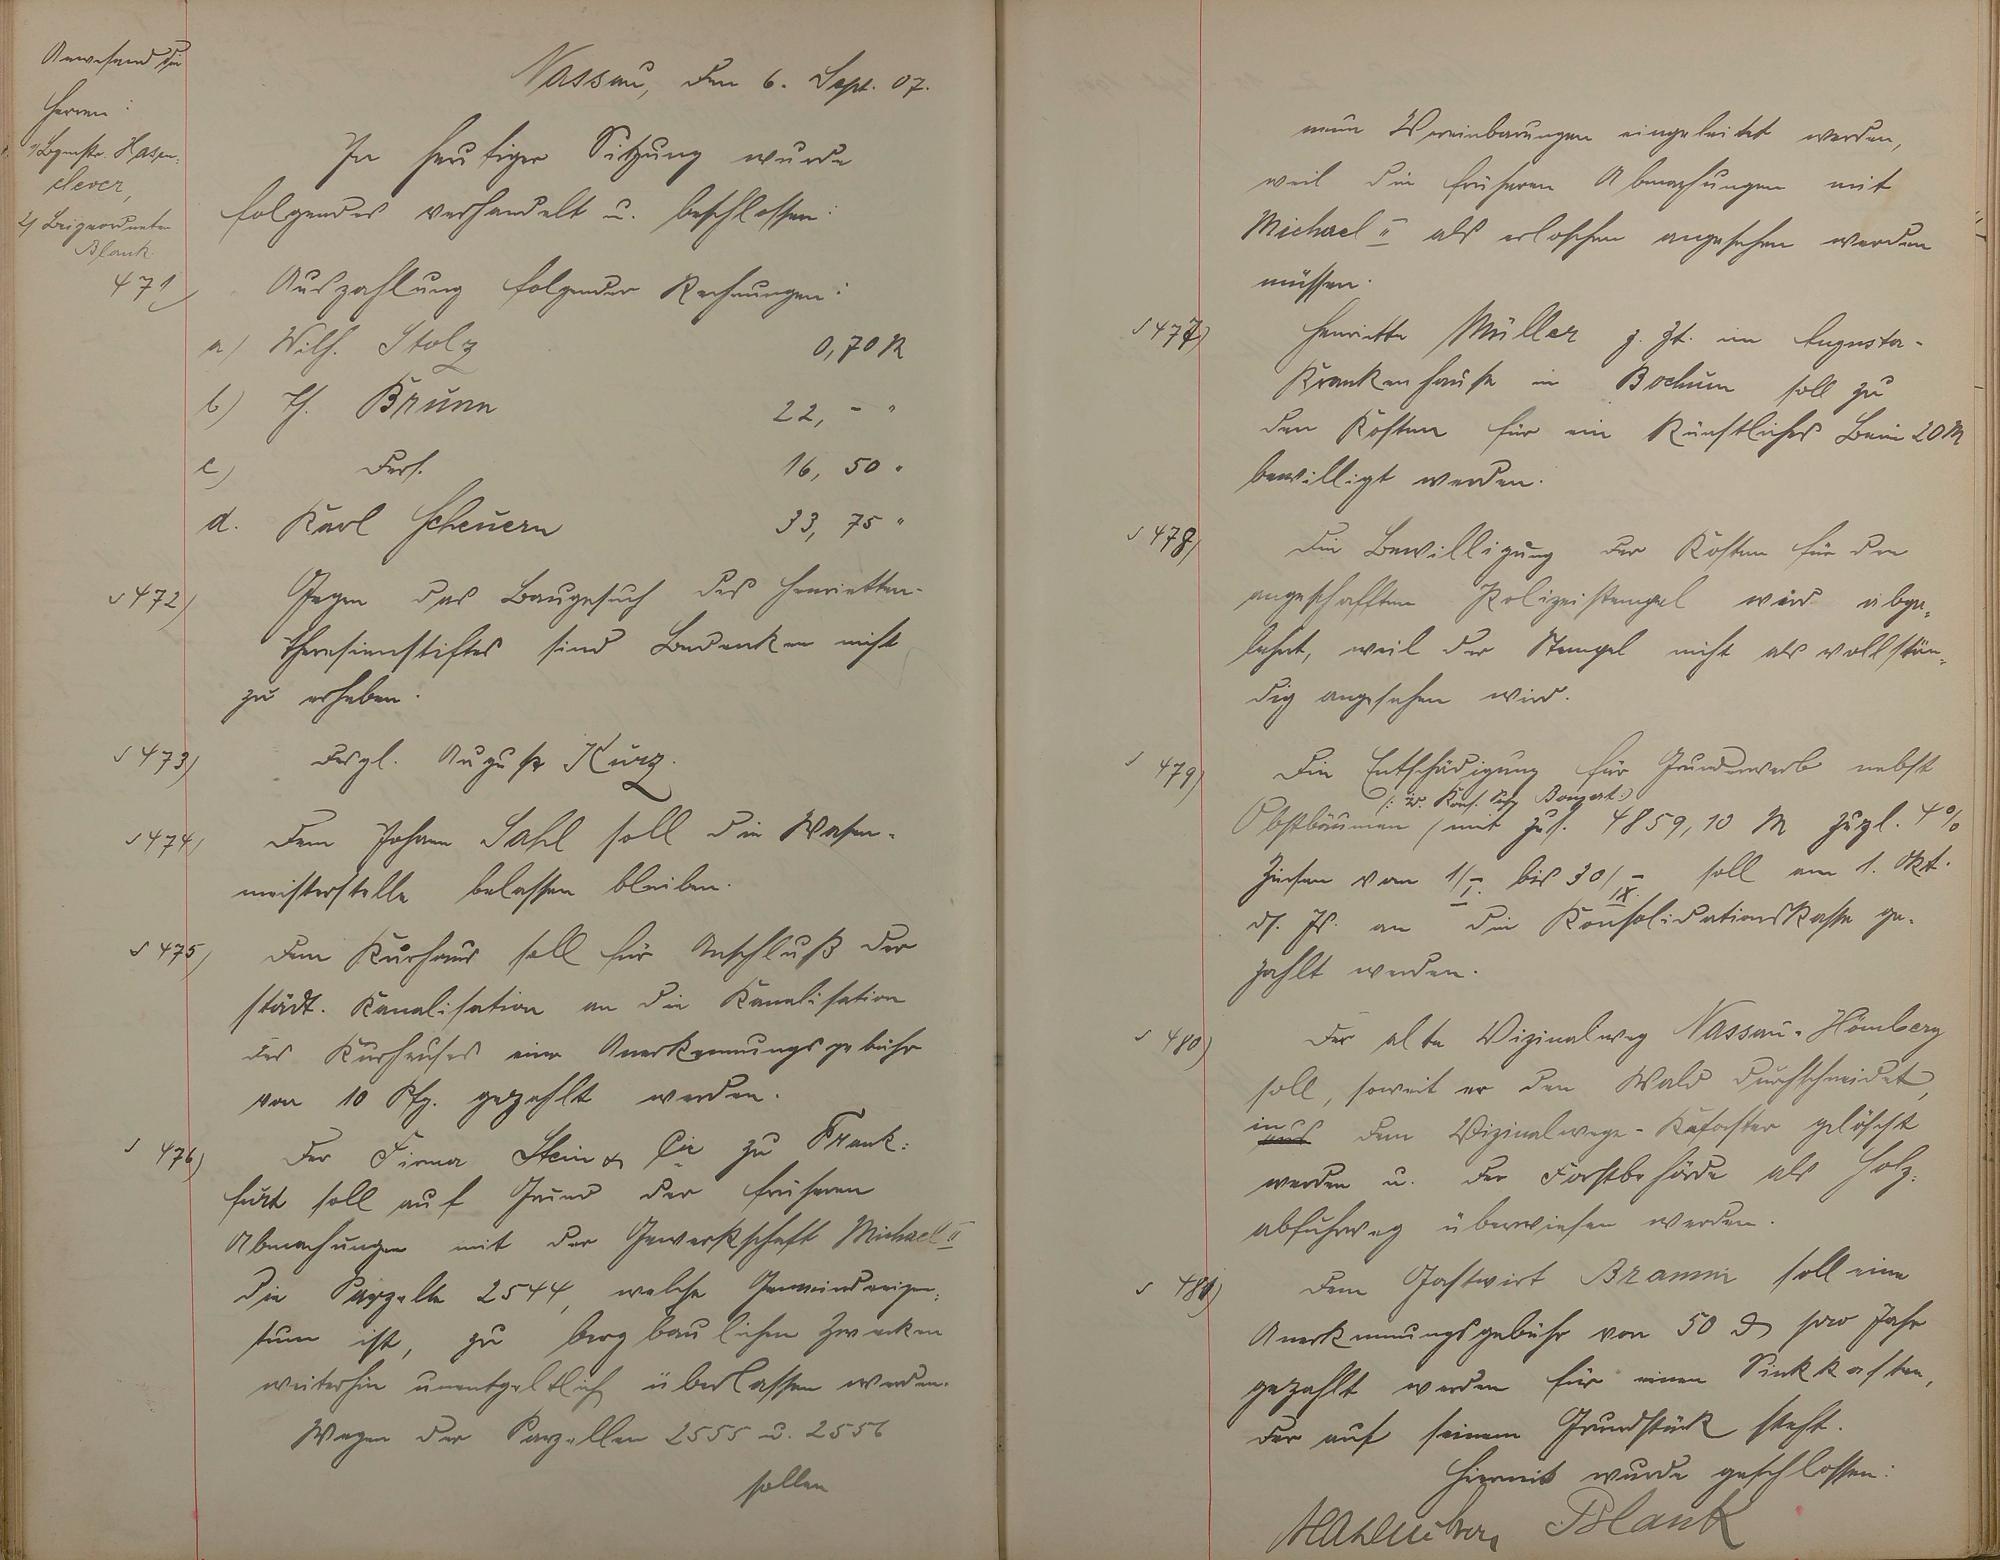 Anwesend die
Herren:
1) Bgmstr. Hasen-
clever,
2) Beigeordneter
Blank.
Nassau, den 6. Sept. 07.
In heutiger Sitzung wurde
folgendes verhandelt u. beschlossen:
471) Auszahlung folgender Rechnungen:
a) Wilh. Stolz 0,70 M
b) Th. Brunn 22, - "
c) Ders. 16, 50 "
d. Karl Scheuern 33, 75 "
§ 472) Gegen das Baugesuch des Henrietten-
Theresienstiftes sind Bedenken nicht
zu erheben.
§ 473) Desgl. August Kurz.
§ 474) Dem Johann Sahl soll die Wasen-
meisterstelle belassen bleiben.
§ 475) Dem Kurhaus soll für Anschluß der
städt. Kanalisation an die Kanalisation
des Kurhauses eine Anerkennungsgebühr
von 10 Pfg. gezahlt werden.
§ 476) Der Firma Stein & Cie zu Frank-
furt soll auf Grund der früheren
Abmachungen mit der Gewerkschaft Michael II
die Parzelle 2544, welche Gemeindeeigen-
tum ist, zu bergbaulichen Zwecken
weiterhin unentgeltlich überlassen werden.
Wegen der Parzellen 2555 u. 2556
sollen
neue Vereinbarungen eingeleitet werden,
weil die früheren Abmachungen mit
Michael II als erloschen angesehen werden
müssen.
§ 477) Henriette Müller z. Zt. im Augusta-
Krankenhause in Bochum soll zu
den Kosten für ein künstliches Bein 20 M
bewilligt werden.
§ 478) Die Bewilligung der Kosten für den
angeschafften Polizeistempel wird abge-
lehnt, weil der Stempel nicht als vollstän-
dig angesehen wird.
§ 479) Die Entschädigung für Grunderwerb nebst
Obstbäumen (mit zus. 4859,10 M zuzgl. 4%
Zinsen vom 1/I. bis 30/IX. soll am 1. Okt.
ds. Js. an die Konsolidationskasse ge-
zahlt werden.
§ 480) Der alte Vizinalweg Nassau-Hömberg
soll, soweit er den Wald durchschneidet,
in dem Vizinalwege-Kataster gelöscht
werden u. der Forstbehörde als Holz-
abfuhrweg überwiesen werden.
§ 481) Dem Gastwirt Bramm soll eine
Anerkennungsgebühr von 50 ₰ pro Jahr
gezahlt werden für einen Sinkkasten,
der auf seinem Grundstück steht.
Hiermit wurde geschlossen:
Hasenclever, Blank